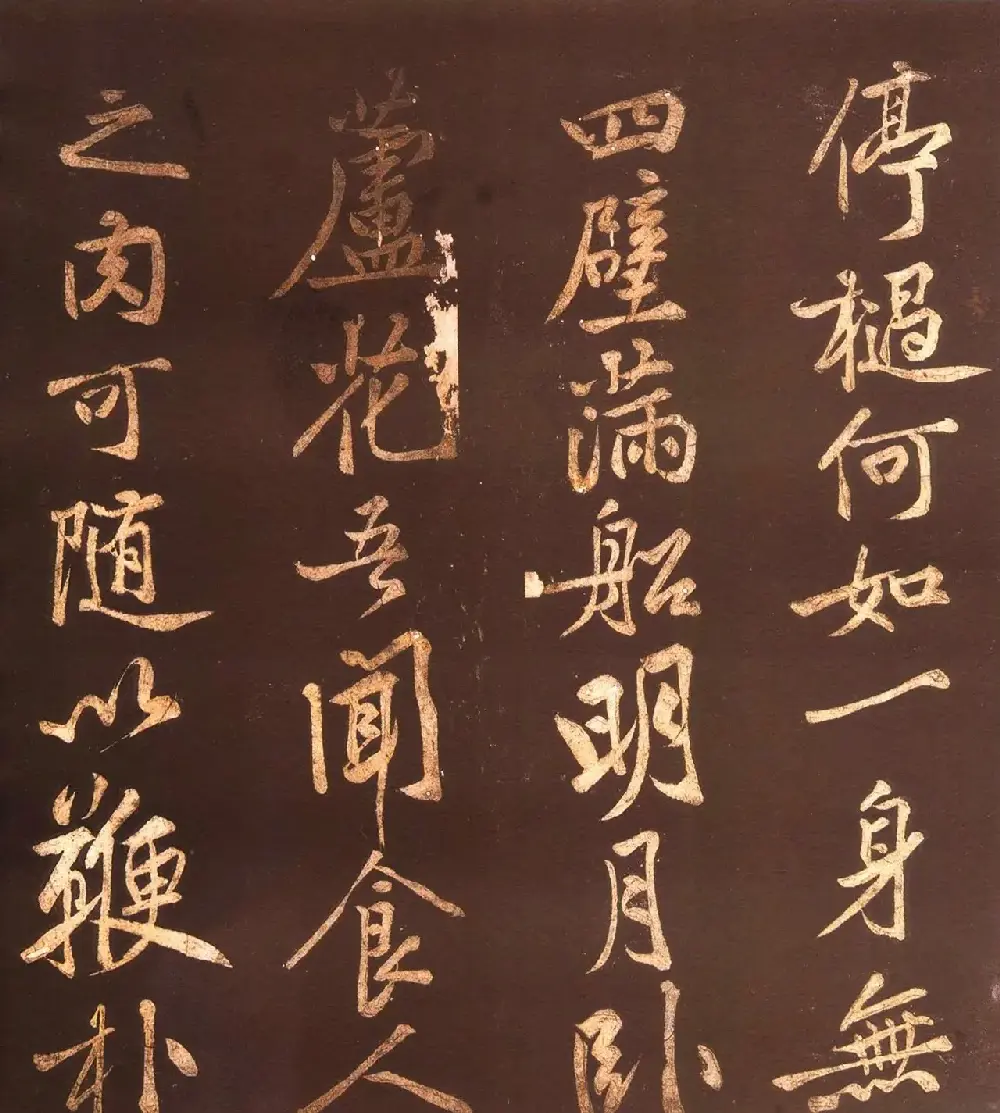 停橈何如一身無
四壁滿船明月卧
蘆花吾聞食人
之肉可随以鞭朴